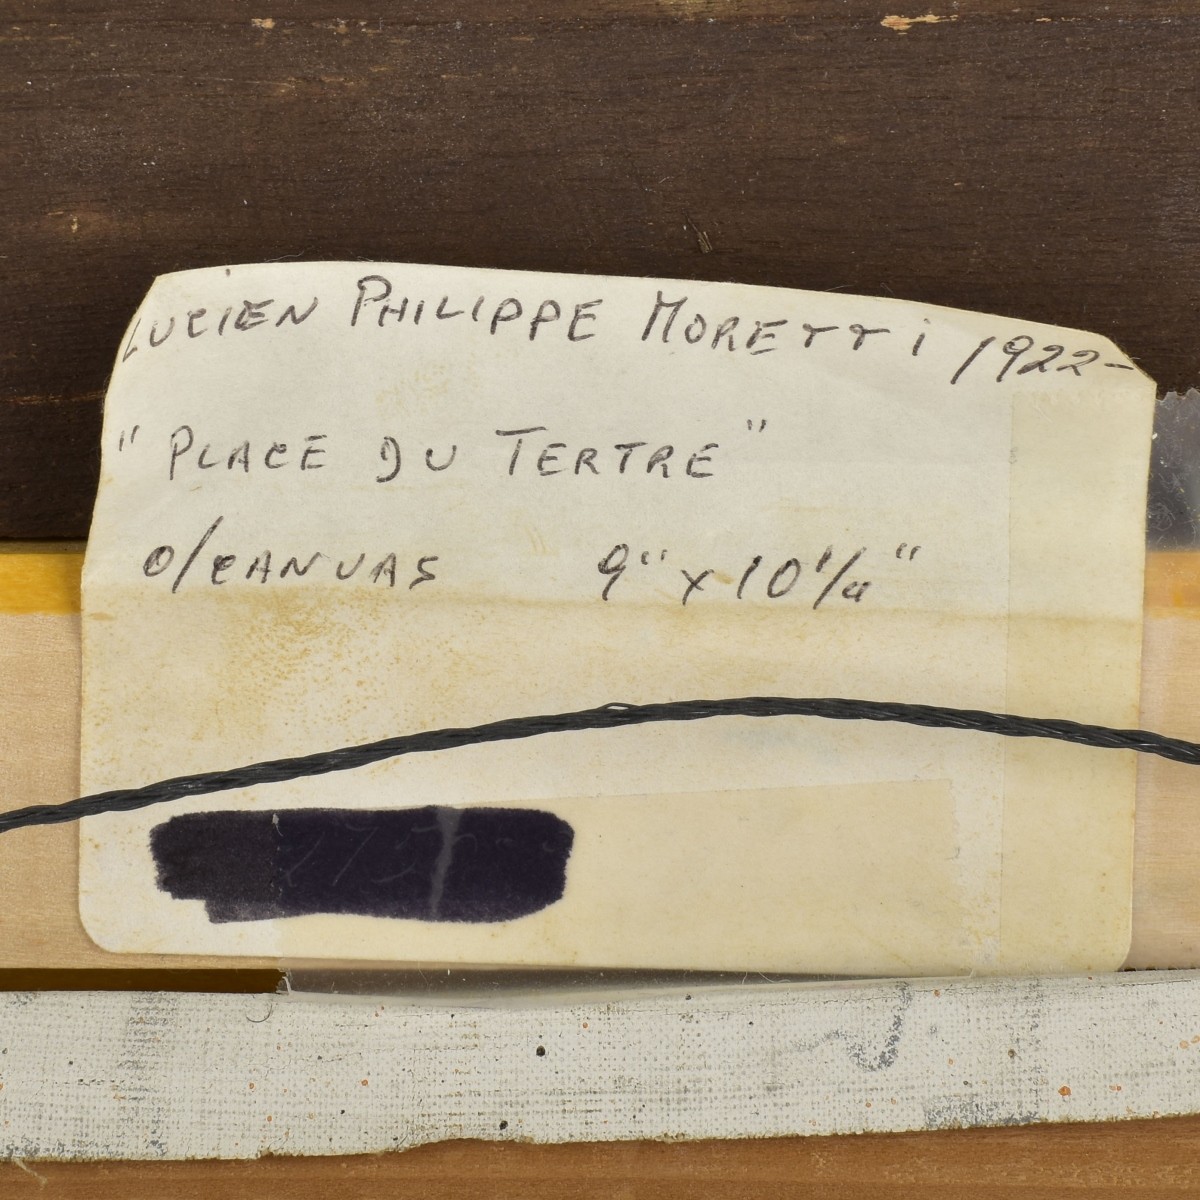 LUCIEN PHILIPPE MORETTI 1922-
"PLACE DU TERTRE"
O/CANVAS 9" x 10 1/4"